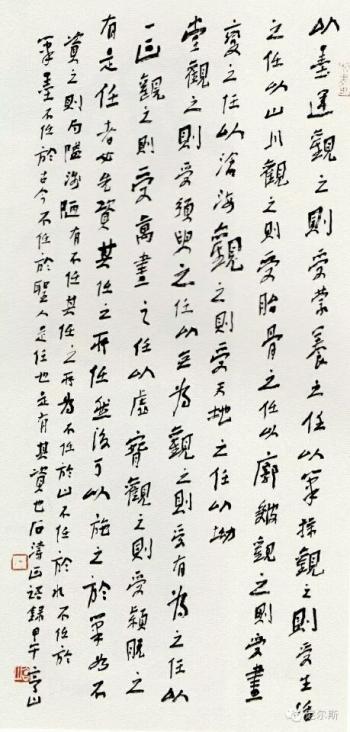 以墨運觀之則受蒙養之任以筆操觀之則受生活
之任以山川觀之則受胎骨之任以廓皴觀之則受畫
變之任以滄海觀之則受天地之任以坳
堂觀之則受須臾之任以無為觀之則受有為之任以
一画觀之則受萬畫之任以虛腕觀之則受穎脫之
有是任者必先資其任之所任然後可以施之於筆如不
資之則局隘淺陋有不任其任之所為不任於山不任於水不任於
筆墨不任於古今不任於聖人是任也是有其資也石濤画語錄甲午